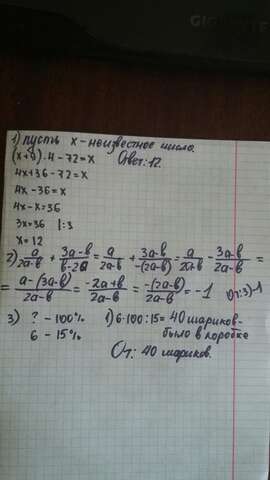 GIGABYTE
1) Пусть x - неизвестное число.
(x+9)·4-72=x Ответ:12.
4x+36-72=x
4x-36=x
4x-x=36
3x=36 |:3
x=12
2) a/(2a-b) + (3a-b)/(b-2a) = a/(2a-b) + (3a-b)/(-(2a-b)) = a/(2a-b) - (3a-b)/(2a-b) =
= (a-(3a-b))/(2a-b) = (-2a+b)/(2a-b) = (-(2a-b))/(2a-b) = -1 От:)-1
3) ? - 100% 1) 6·100:15= 40 шариков-
6 - 15% было в коробке
От: 40 шариков.